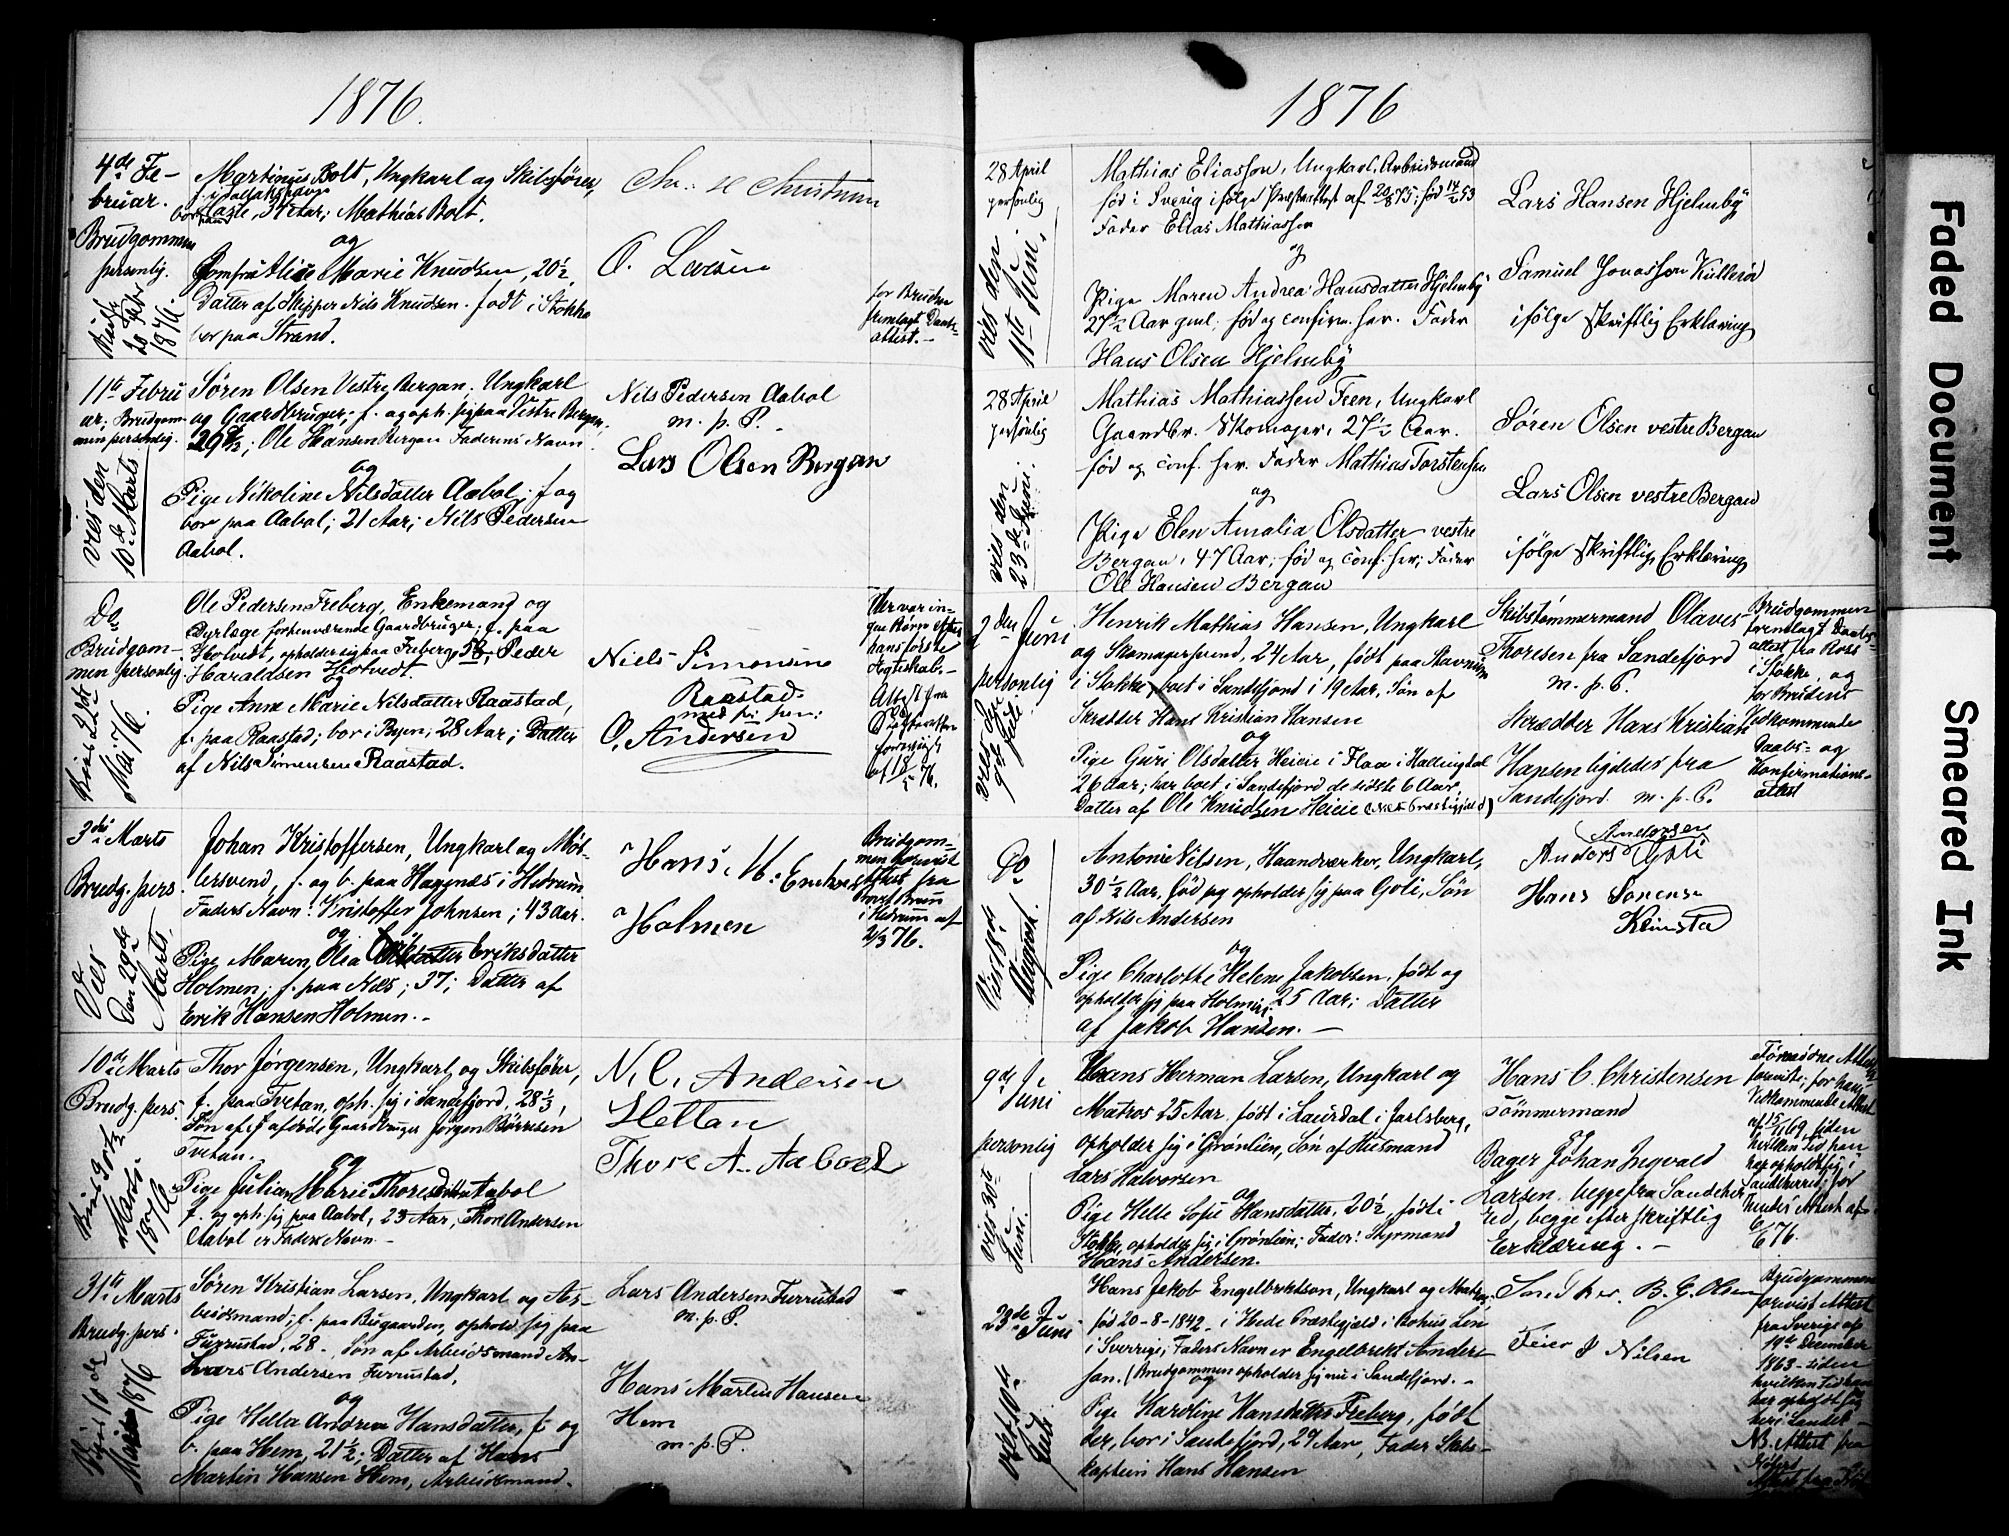 1876.
4de Fe-
bruar.
Brudgommen
personlig.
28 Febr
1876.
Martinus Bolt, Ungkarl og Skibsfører,
bor paa
34 Aar; Mathias Bolt.
og
Jomfru Marie Knudsen, 20 1/2
Datter af Skipper Nils Knudsen. født i Stokke
bor paa Strand.
O. Larsen
for Bruden
fremlagt Daabs-
attest.-
11te Febru
ar; Brudgom-
men personlig.
vies den
10de Marts
Søren Olsen Vestre Bergan; Ungkarl
og Gaardbruger; f. og oph. sig paa Vestre Bergan,
Ole Hansen Bergan Faderens Navn
og
Pige Nikoline Nilsdatter Aabol; f og
bor paa Aabol; 21 Aar; Nils Pedersen
Aabol.
Nils Pedersen Aabol
m. p. P.
Lars Olsen Bergan
Do
Brudgom-
men personlig.
Mai 76.
Ole Pedersen Freberg, Enkemand og
Dyrlæge forhenværende Gaardbruger; f. paa
Hotvedt, opholder sig paa Freberg, 58; Peder
Haraldsen Hotvedt.
Pige Anne Marie Nilsdatter Raastad,
f. paa Raastad; bor i Byen; 28 Aar; Datter
af Nils Simensen Raastad.
Niels Simonsen
Raastad.
med paa pen:
O. Andersen
Der var in-
gen Børn efter
hans første
Ægteskab.-
Attest fra
Skifteretten
af 18/5 76.
3die Marts
Brudg. pers.
Vies
den 29de
Marts.
Johan Kristoffersen, Ungkarl og Møl-
lersvend, f. og b. paa Haugnæs i Hedrum
Faders Navn: Kristoffer Johnsen; 43 Aar.
og
Pige Maren Olea Eriksdatter
Holmen; f. paa Næs; 37; Datter af
Erik Hansen Holmen.-
Hans M. Eriksen
Holmen
Brudgom-
men forevist
Attest fra
i Hedrum af
2/3 76.
10de Marts
Brudg. pers.
Marts
1876
Thor Jørgensen, Ungkarl og Skibsfører,
f. paa Tvetan, oph. sig i Sandefjord, 28 1/3,
Søn af afdøde Gaardbruger Jørgen Børresen
Tvetan.
og
Pige Juliane Marie Thoresdatter Aabol
f. og oph. sig paa Aabol, 23 Aar, Thore Andersen
Aabol er Faders Navn.-
N. C. Andersen
Hettan
Thore A. Aaboel
31te Marts
Brudg. pers.
1876
Søren Kristian Larsen, Ungkarl og Ar-
beidsmand; f. paa Bugaarden, ophold. sig paa
Furrustad, 28-, Søn af Arbeidsmand
Lars Andersen Furrustad.
og
Pige Hella Andrea Hansdatter, f. og
b. paa Hem, 21 1/2; Datter af Hans
Martin Hansen Hem, Arbeidsmand.
Lars Andersen Furrustad
m. p. P.
Hans Martin Hansen
Hem
m. p. P.
1876
28 April
personlig
vies den
11te Juni.
Mathias Eliassen, Ungkarl, Arbeidsmand
fød i Sverig ifølge Præsteattest af 20/8 75; fød 14/2 53
Fader Elias Mathiassen
og
Pige Maren Andrea Hansdatter Hjelmby
27 1/2 Aar gml; fød og confirm. her. Fader
Hans Olsen Hjelmby
Lars Hansen Hjelmby
Samuel Jonassen Kullerød
ifølge skriftlig Erklæring
28 April
personlig
vies den
23de Juni.
Mathias Mathiassen Feen, Ungkarl
Gaardbr. Skomager, 27 1/2 Aar.
fød og conf. her. Fader Mathias Torstensen
og
Pige Elen Amalia Olsdatter vestre
Bergan, 47 Aar; fød og conf. her; Fader
Ole Hansen Bergan
Søren Olsen vestre Bergan
Lars Olsen vestre Bergan
ifølge skriftlig Erklæring
2den Juni
personlig
Henrik Mathias Hansen, Ungkarl
og Skomagersvend, 24 Aar, født paa Stavnum
i Stokke, boet i Sandefjord i 19 Aar. Søn af
Skrædder Hans Kristian Hansen
og
Pige Guri Olsdatter Heieie i Flaa i Hallingdal
26 Aar; har boet i Sandefjord de sidste 6 Aar,
Datter af Ole Knudsen Heieie (Næs Præstegjæld)
Skibstømmermand Olaves
Thoresen fra Sandefjord
m. p. P.
Skrædder Hans Kristian
Hansen ligeledes fra
Sandefjord. m. p. P.
Brudgommen
fremlagt Daabs-
attest fra
i Stokke, og
for Brudens
Vedkommende
Daabs- og
Konfirmations-
attest
Do
Vies 18de
August.
Anton Nilsen, Haandværker, Ungkarl,
30 1/2 Aar, fød og opholder sig paa Goli, Søn
af Nils Andersen
og
Pige Charlotte Helene Jakobsen, født og
opholder sig paa Holmen; 25 Aar; Datter
af Jakob Hansen.-
Andersen
Anders Goli
Hans Sørensen
9de Juni
personlig
vies 30te
Juni.
Hans Herman Larsen, Ungkarl og
Matros 25 Aar, født i Laurdal i Jarlsberg,
opholder sig i Grønlien, Søn af Husmand
Lars Halvorsen
og
Pige Helle Sofie Hansdatter, 20 1/2, født i
Stokke, opholder sig i Grønlien; Fader: Styrmand
Hans Andersen.
Hans C. Christensen
Tømmermand
og
Bager Johan Ingvald
Larsen. begge fra Sandeher
red, begge efter skriftlig
Erklæring.-
Fornødne Attester
foreviste; for hans
Vedkommende Attest
69, siden
hvilken Tid han
har opholdt sig i
Sandeherred; for
hendes Attest af
76.
23de Juni
Juli
Hans Jakob Engelbrektson, Ungkarl og Matros,
født 20-8-1842- i Hede Præstegjæld i Bohus Len
i Sverrige; Faders Navn er Engelbrekt Ander-
son. (Brudgommen opholder sig nu i Sandefjord.-
og
Pige Karoline Hansdatter Freberg, født
der, bor i Sandefjord, 29 Aar, Fader Skibs-
kaptein Hans Hansen
B. G. Olsen
Feier J Nilsen
Brudgommen
forevist Attest
fra Sverige af
19de December
1863- siden
hvilken Tid han
har opholdt sig
her i Landet-
NB. Attest fra
Faded Document
Smeared Ink